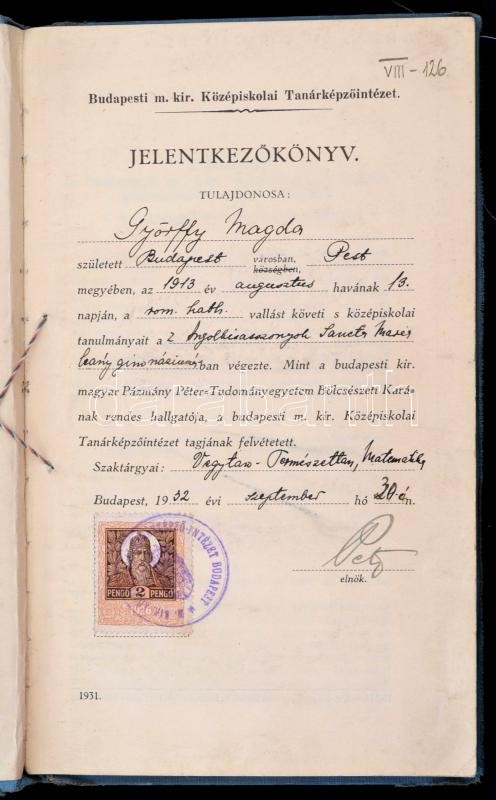 VIII-126
Budapesti m. kir. Középiskolai Tanárképzőintézet.
JELENTKEZŐKÖNYV.
TULAJDONOSA:
Györffy Magda
született Budapest városban, községben, Pest
megyében, az 1913 év augusztus havának 13.
napján, a rom. kath. vallást követi s középiskolai
tanulmányait a z Angolkisasszonyok Sancta Maria
leánygimnázium ban végezte. Mint a budapesti kir.
magyar Pázmány Péter-Tudományegyetem Bölcsészeti Kará-
nak rendes hallgatója, a budapesti m. kir. Középiskolai
Tanárképzőintézet tagjának felvétetett.
Szaktárgyai: Vegytan-Természettan, Matematika
Budapest, 1932 évi szeptember hó 30-én.
elnök.
INTÉZET BUDAPEST
PENGŐ 2 PENGŐ
1926
1931.
darabanth